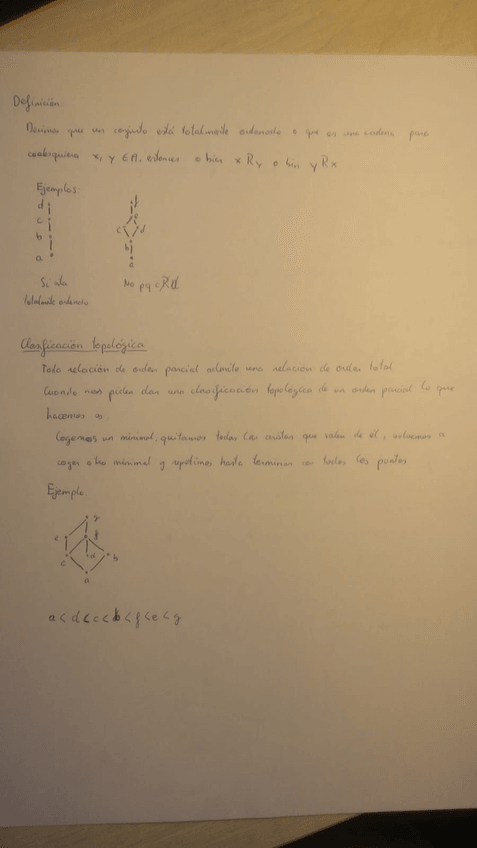 Definición:
Decimos que un conjunto está totalmente ordenado o que es una cadena para
cualesquiera x, y ∈ A, entonces o bien x R y o bien y R x
Ejemplos:
d
c
b
a
c d
b
a
Si está
totalmente ordenado
No pq c R d
Clasificación topológica
Toda relación de orden parcial admite una relación de orden total
Cuando nos piden dar una clasificación topológica de un orden parcial lo que
hacemos es:
Cogemos un minimal, quitamos todas las aristas que salen de él, volvemos a
coger otro minimal y repetimos hasta terminar con todos los puntos
Ejemplo
g
e f
c d b
a
a < d < c < b < f < e < g